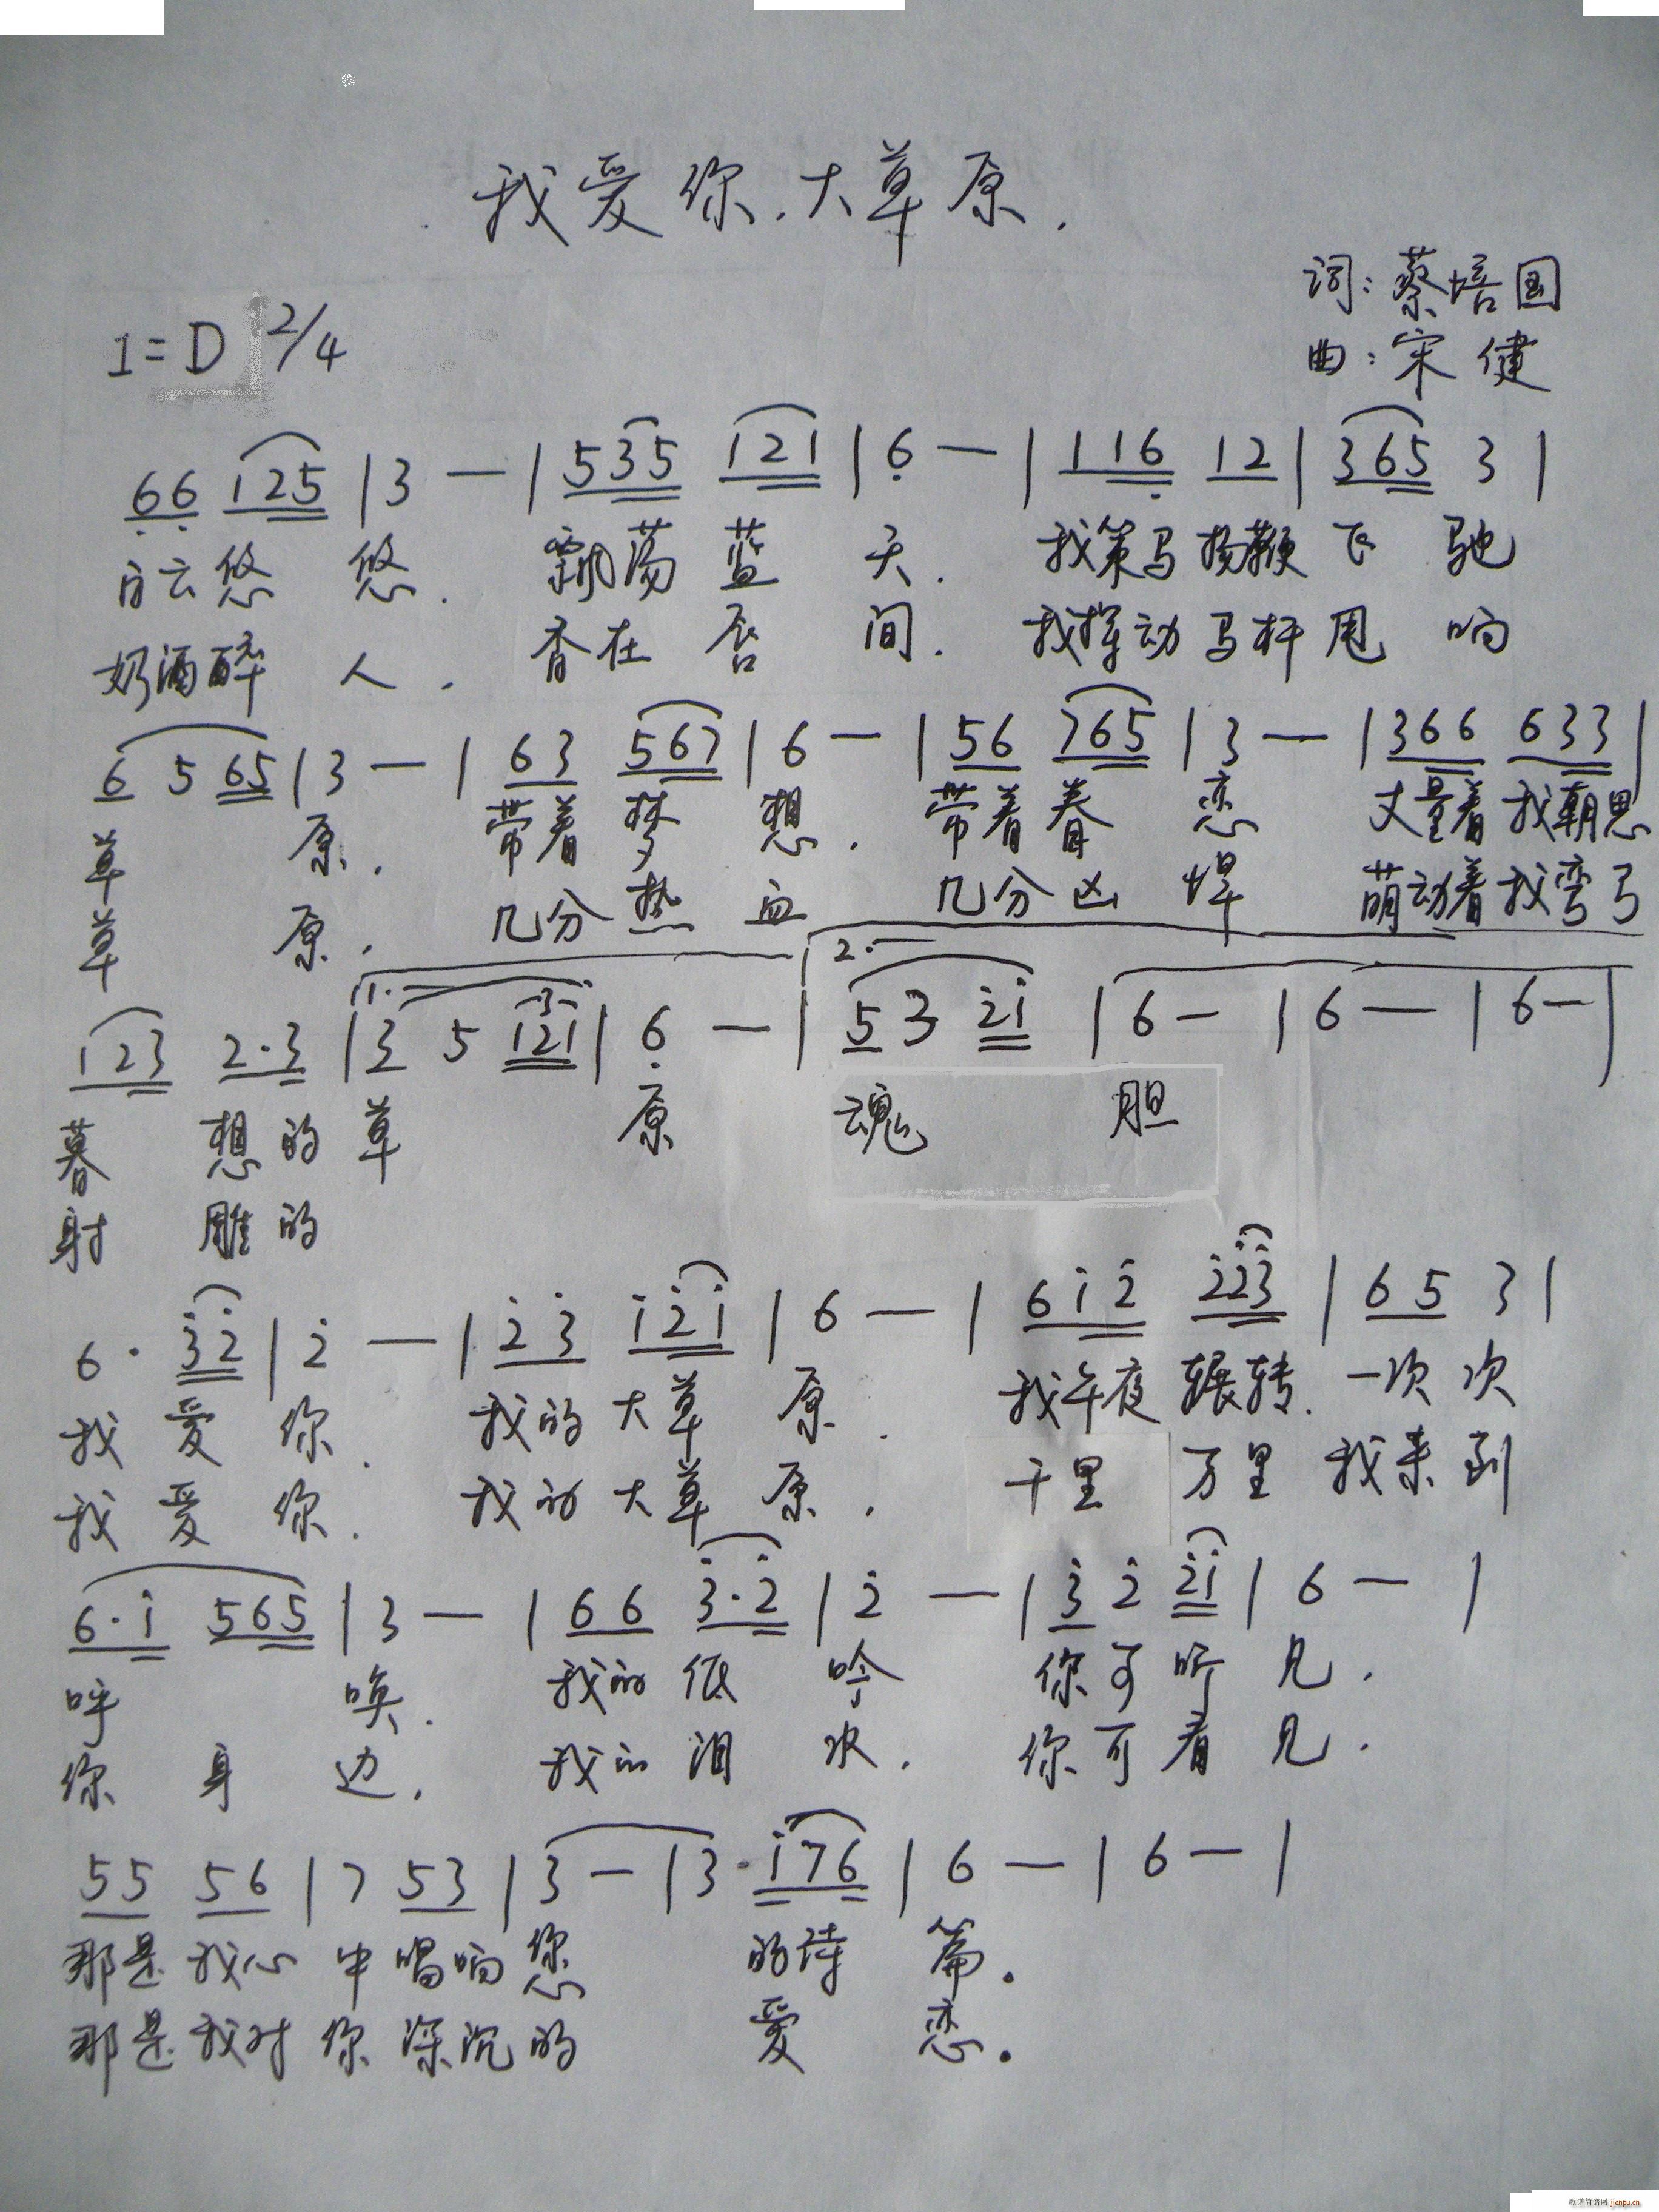 我爱你.大草原.
词:蔡培国
1=D 2/4
曲:宋健
66 125 | 3 — | 535 121 | 6 — | 116 12 | 365 3 |
白云悠 悠. 飘荡蓝 天. 我策马扬鞭飞 驰
奶酒醉 人. 香在唇 间. 我挥动马杆甩 响
6 5 65 | 3 — | 63 567 | 6 — | 56 765 | 3 — | 366 633 |
草 原. 带着梦 想. 带着眷 恋 丈量着我朝思
草 原. 几分热 血 几分凶 悍 萌动着我弯弓
1. 2.
123 2·3 | 3 5 121 | 6 — | 5 3 21 | 6 — | 6 — | 6 — |
暮 想的草 原 魂 胆
射 雕的
6· 32 | 2 — | 23 121 | 6 — | 612 223 | 65 3 |
我爱你. 我的大草 原. 我午夜辗转.一次次
我爱你. 我的大草 原. 千里 万里 我来到
6·1 565 | 3 — | 66 3·2 | 2 — | 3 2 21 | 6 — |
呼 唤. 我的低 吟 你可听 见.
你 身 边. 我的泪 水. 你可看 见.
55 56 | 7 53 | 3 — | 3· 176 | 6 — | 6 — |
那是我心中唱响您 的诗 篇。
那是我对你深沉的 爱 恋。
歌谱简谱网 jianpu.cn